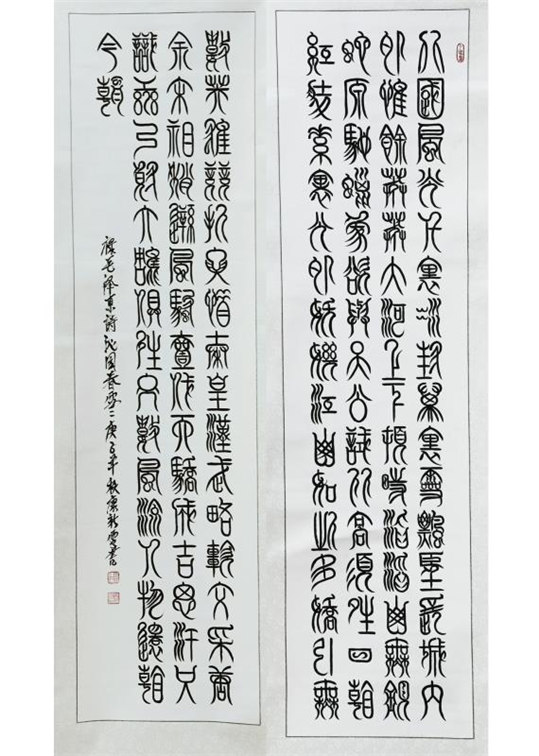 北國風光千里冰封萬里雪飄望長城內
外惟餘莽莽大河上下頓時滔滔山舞銀
蛇原馳蠟象欲與天公試比高須晴日看
紅裝素裹分外妖嬈江山如此多嬌引無
數英雄競折腰惜秦皇漢武略輸文采唐
宗宋祖稍遜風騷一代天驕成吉思汗只
識彎弓射大雕俱往矣數風流人物還看
今朝
錄毛澤東詩沁園春雪庚子年秋書